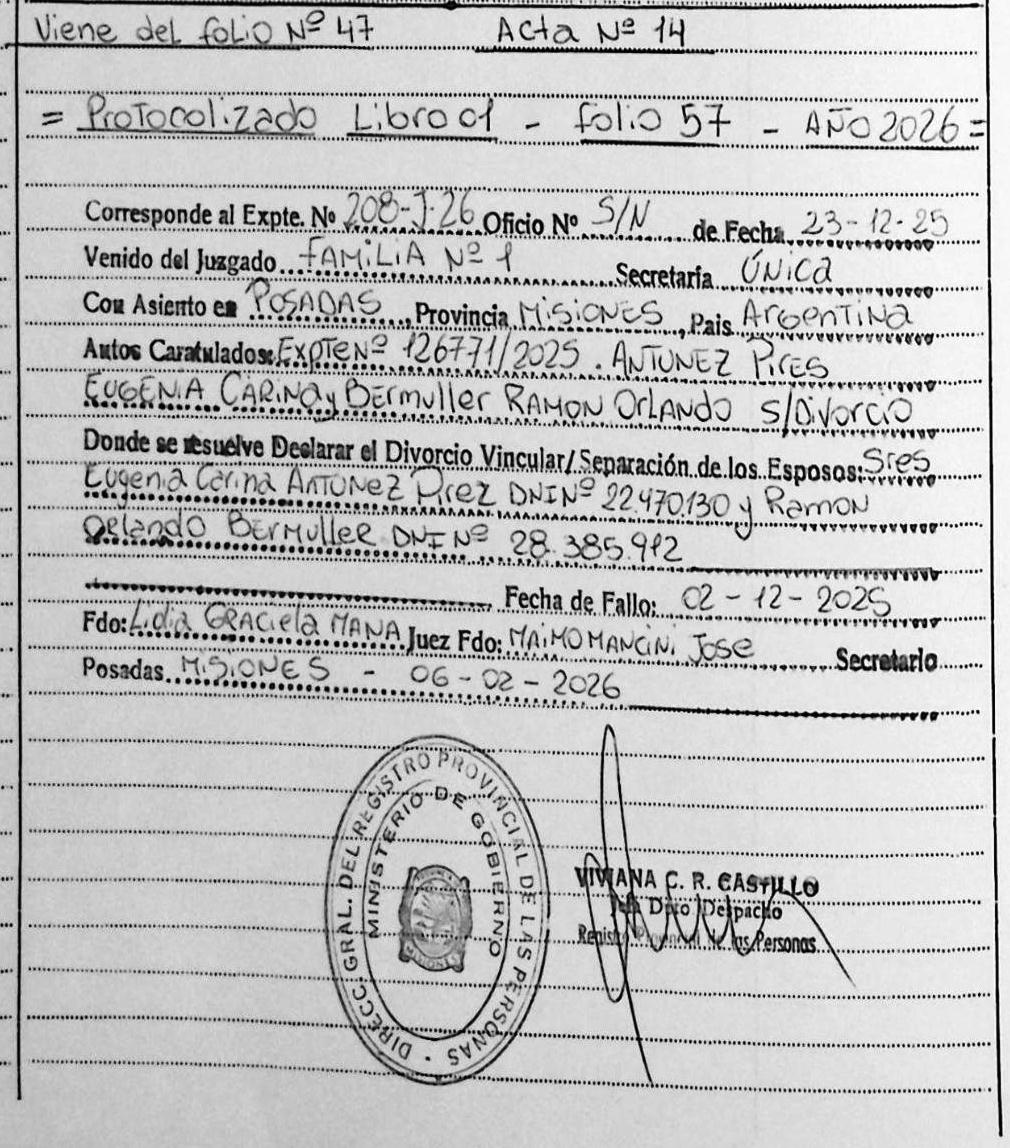 Viene del folio Nº 47 Acta Nº 14
= Protocolizado Libro 01 - folio 57 - AÑO 2026 =
Corresponde al Expte. Nº 208-J-26 Oficio Nº S/N de Fecha 23-12-25
Venido del Juzgado FAMILIA Nº 1 Secretaría Única
Con Asiento en POSADAS, Provincia Misiones, Pais Argentina
Autos Caratulados: Expte Nº 126771/2025. ANTUNEZ PIRES
EUGENIA CARINA y Bermuller RAMON Orlando S/Divorcio
Donde se resuelve Declarar el Divorcio Vincular/Separación de los Esposos: Sres
Eugenia Carina Antunez Pirez DNI Nº 22.470.130 y Ramon
Orlando Bermuller DNI Nº 28.385.912
Fecha de Fallo: 02-12-2025
Fdo: Lidia Graciela MANA Juez Fdo: MAIMO MANCINI Jose Secretario
Posadas MISIONES - 06-02-2026
DIRECC. GRAL. DEL REGISTRO PROVINCIAL DE LAS PERSONAS
MINISTERIO DE GOBIERNO
VIVIANA C. R. CASTILLO
Dpto Despacho
Registro Provincial de las Personas